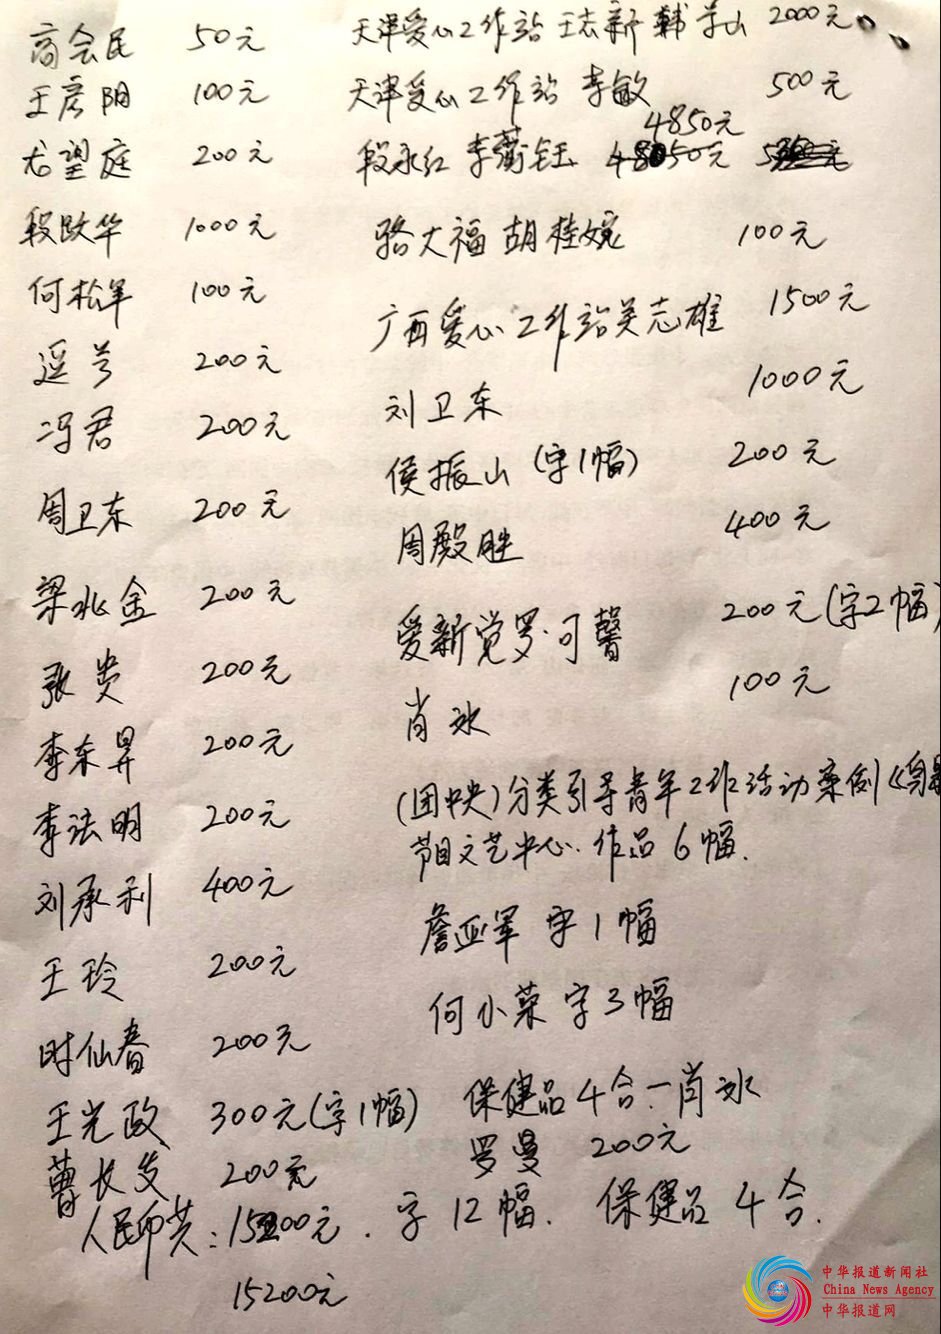 商会民 50元
王彦阳 100元
尤望庭 200元
段跃华 1000元
何松年 100元
遥兮 200元
冯君 200元
周卫东 200元
梁兆金 200元
张贵 200元
李东昇 200元
李法明 200元
刘承利 400元
王玲 200元
时仙春 200元
王光政 300元(字1幅)
曹长发 200元
天津爱心工作站 王志新 韩学山 2000元
天津爱心工作站 李敏 500元
4850元
段永红 李蘅钰 48050元
骆大福 胡桂婉 100元
广西爱心工作站关志雄 1500元
刘卫东 1000元
侯振山(字1幅) 200元
周殿胜 400元
爱新觉罗·可馨 200元(字2幅)
肖冰 100元
(团中央)分类引导青年工作活动案例《
节目文艺中心.作品6幅.
詹亚军 字1幅
何小菜 字3幅
保健品4合.一肖冰
罗曼 200元
人民币共:15200元.字12幅.保健品4合.
15200元
中华报道新闻社
China News Agency
中华报道网